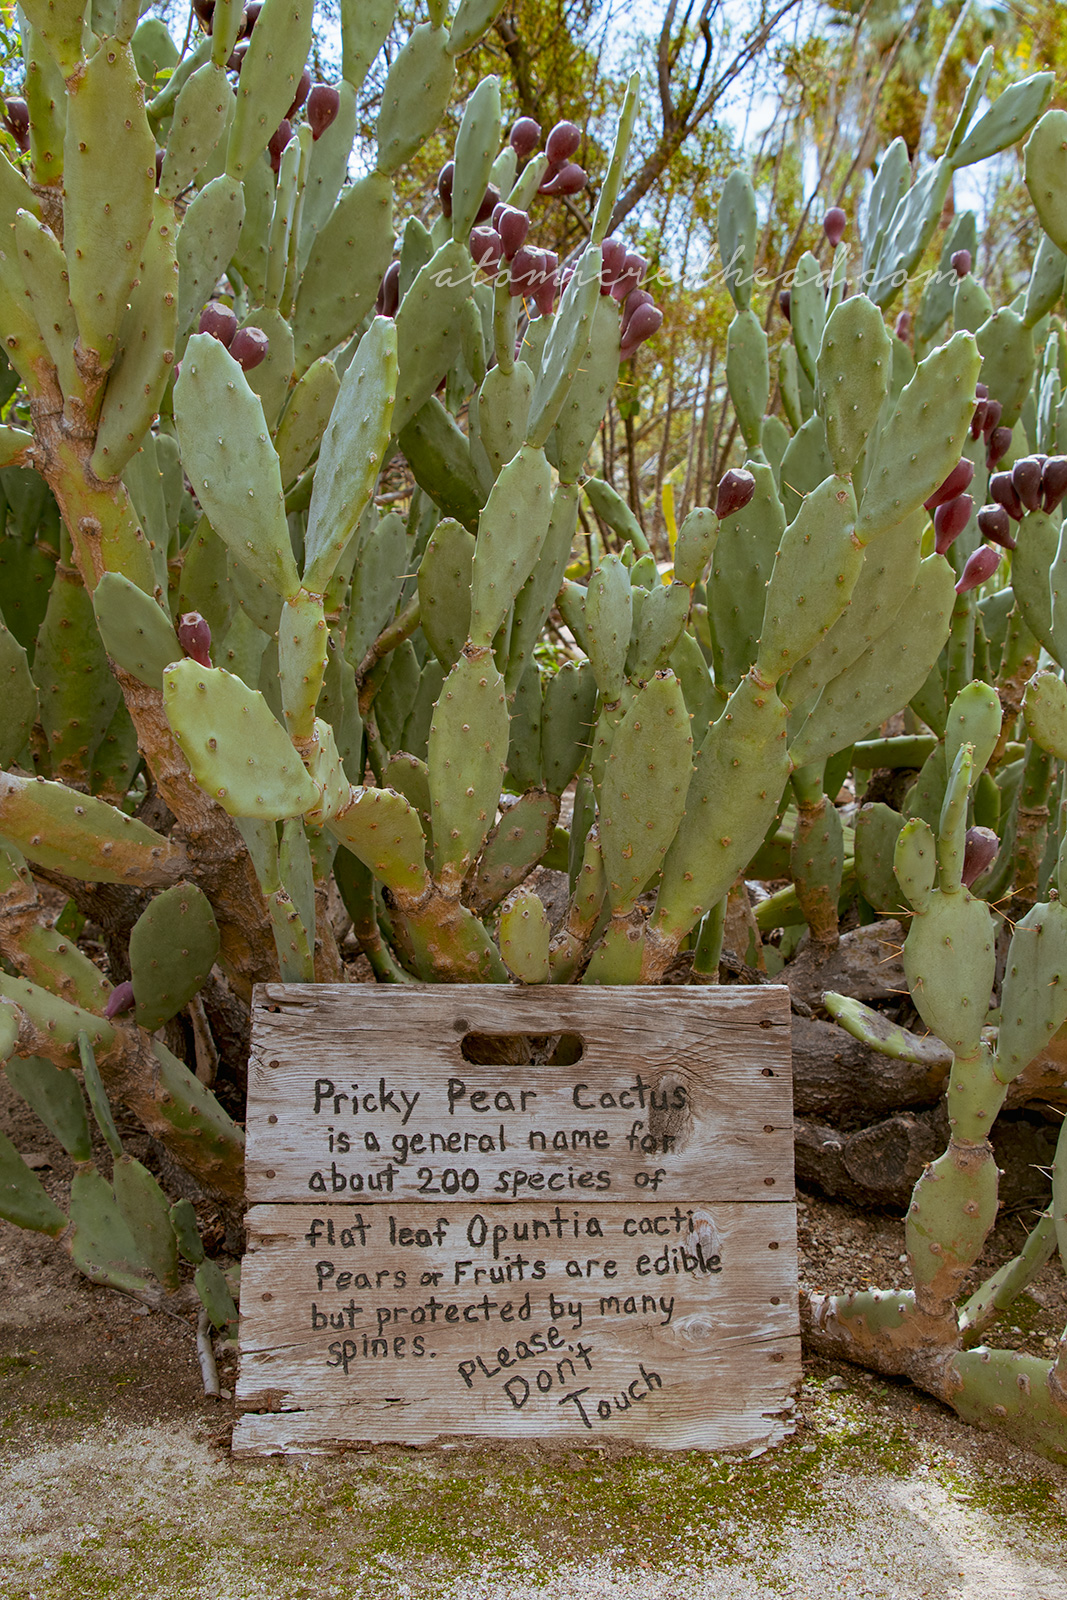 atomicredhead.com
Pricky Pear Cactus
is a general name for
about 200 species of
flat leaf Opuntia cacti
Pears or Fruits are edible
but protected by many
spines.
PLease
Don't
Touch